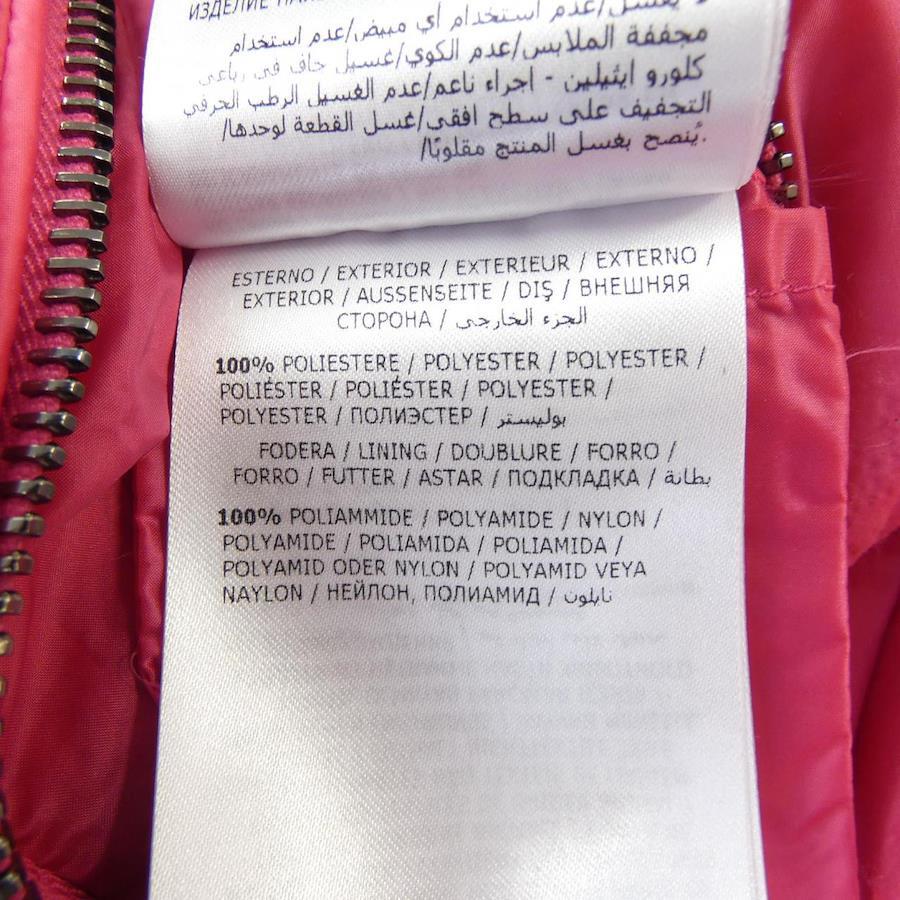 ИЗДЕЛИЕ
لا يغسل/عدم استخدام أي مبيض/عدم استخدام
مجففة الملابس/عدم الكوي/غسيل جاف في رباعي
كلورو ايثيلين - اجراء ناعم/عدم الغسيل الرطب الحرفي
التجفيف على سطح افقي/غسل القطعة لوحدها/
يُنصح بغسل المنتج مقلوبًا/.
ESTERNO / EXTERIOR / EXTERIEUR / EXTERNO /
EXTERIOR / AUSSENSEITE / DIŞ / ВНЕШНЯЯ
СТОРОНА / الجزء الخارجي
100% POLIESTERE / POLYESTER / POLYESTER /
POLIÉSTER / POLIÉSTER / POLYESTER /
POLYESTER / ПОЛИЭСТЕР / بوليستر
FODERA / LINING / DOUBLURE / FORRO /
FORRO / FUTTER / ASTAR / ПОДКЛАДКА / بطانة
100% POLIAMMIDE / POLYAMIDE / NYLON /
POLYAMIDE / POLIAMIDA / POLIAMIDA /
POLYAMID ODER NYLON / POLYAMID VEYA
NAYLON / НЕЙЛОН, ПОЛИАМИД / نايلون